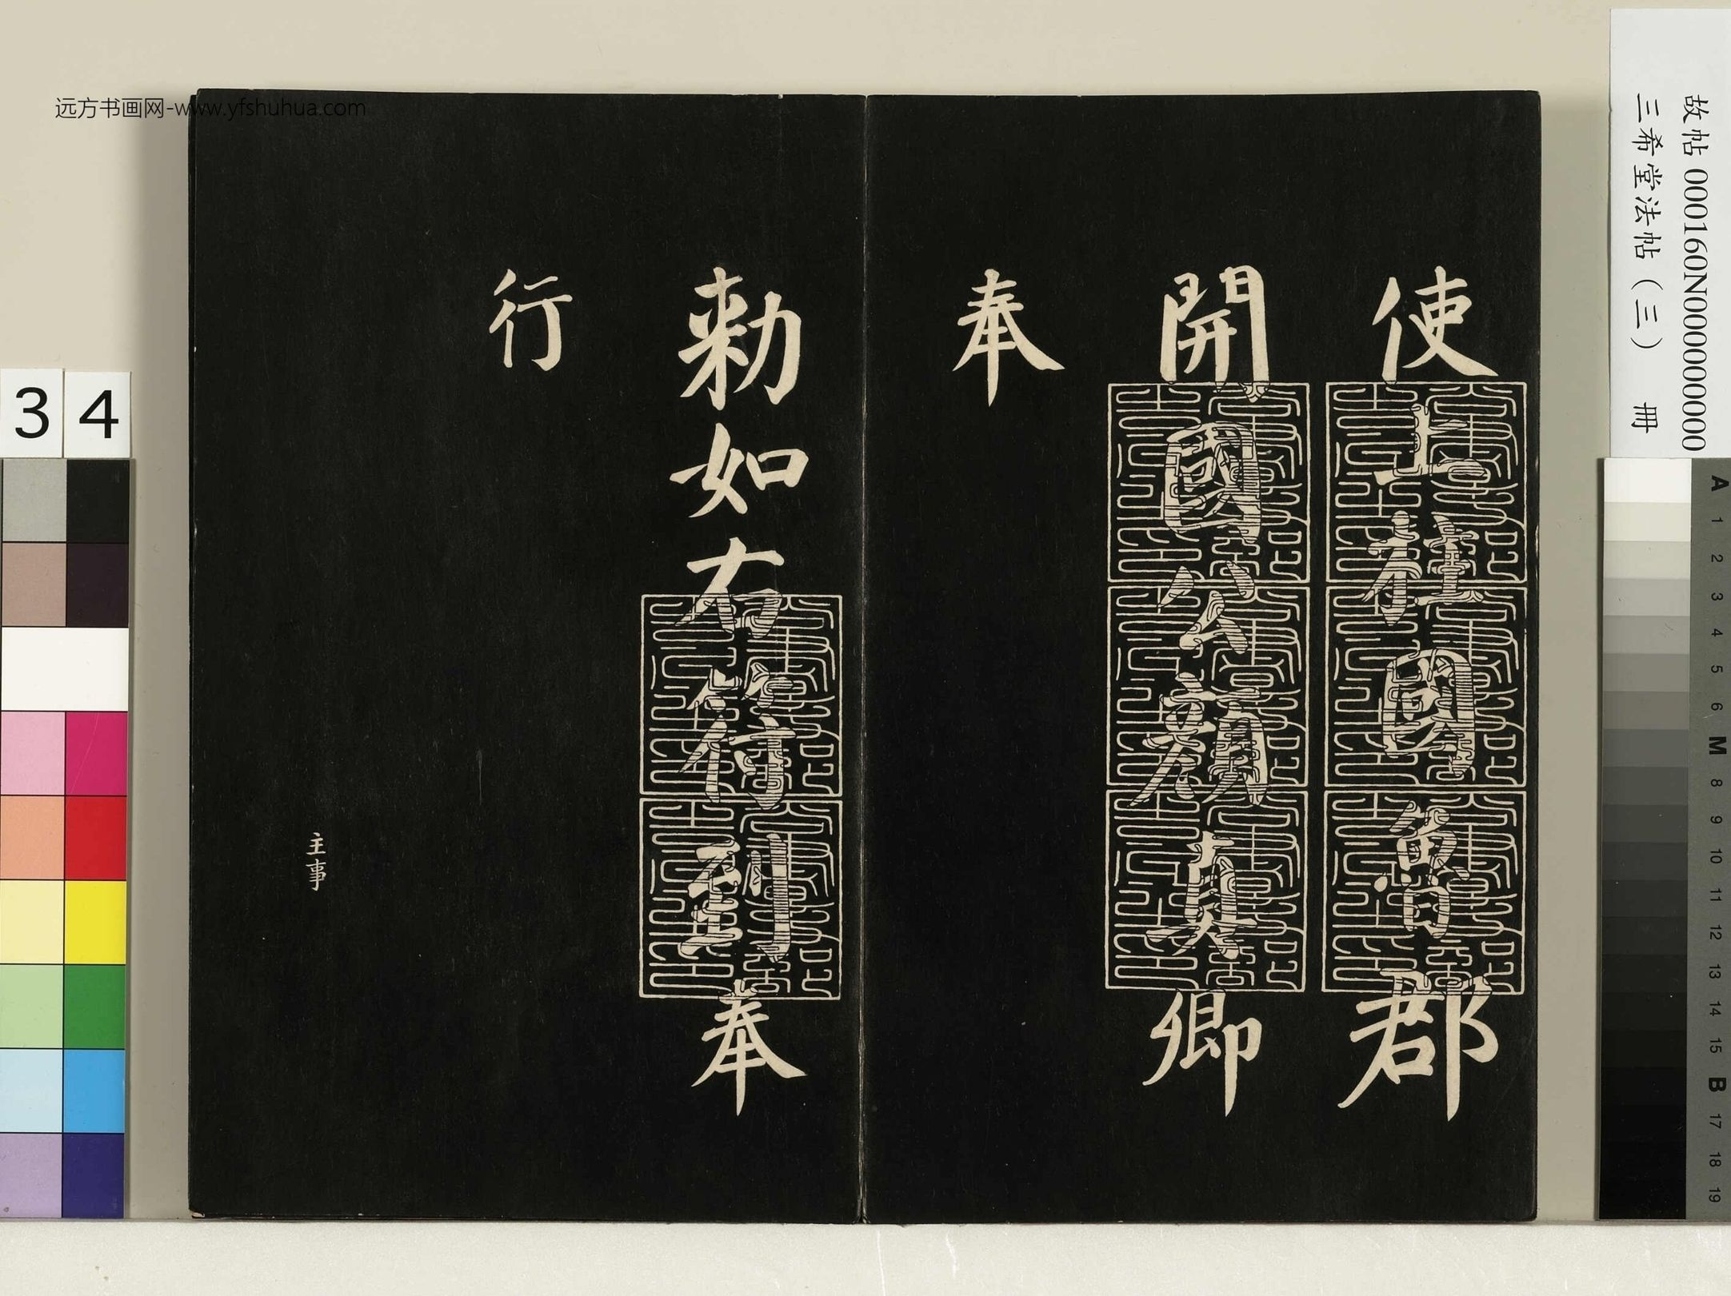 使上柱國魯郡
開國公顏真卿
奉
勑如右符到奉
行
主事
远方书画网-www.yfshuhua.com
故帖 000160N000000000
三希堂法帖（三） 冊
3 4
A
1
2
3
4
5
6
M
8
9
10
11
12
13
14
15
B
17
18
19